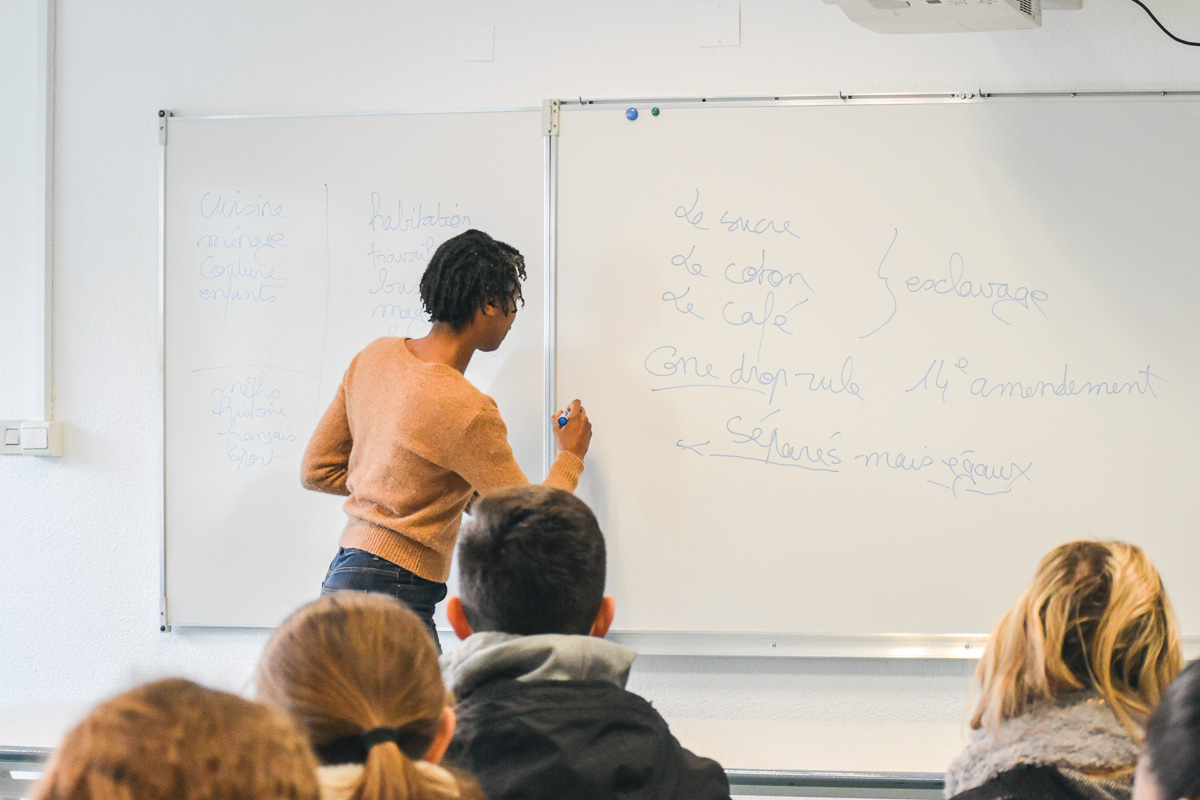 cuisine
ménage
couture
enfants
maths
histoire
français
sport
habitation
travail
Le sucre
Le coton
Le café
} esclavage
One drop rule 14e amendement
← Séparés mais égaux